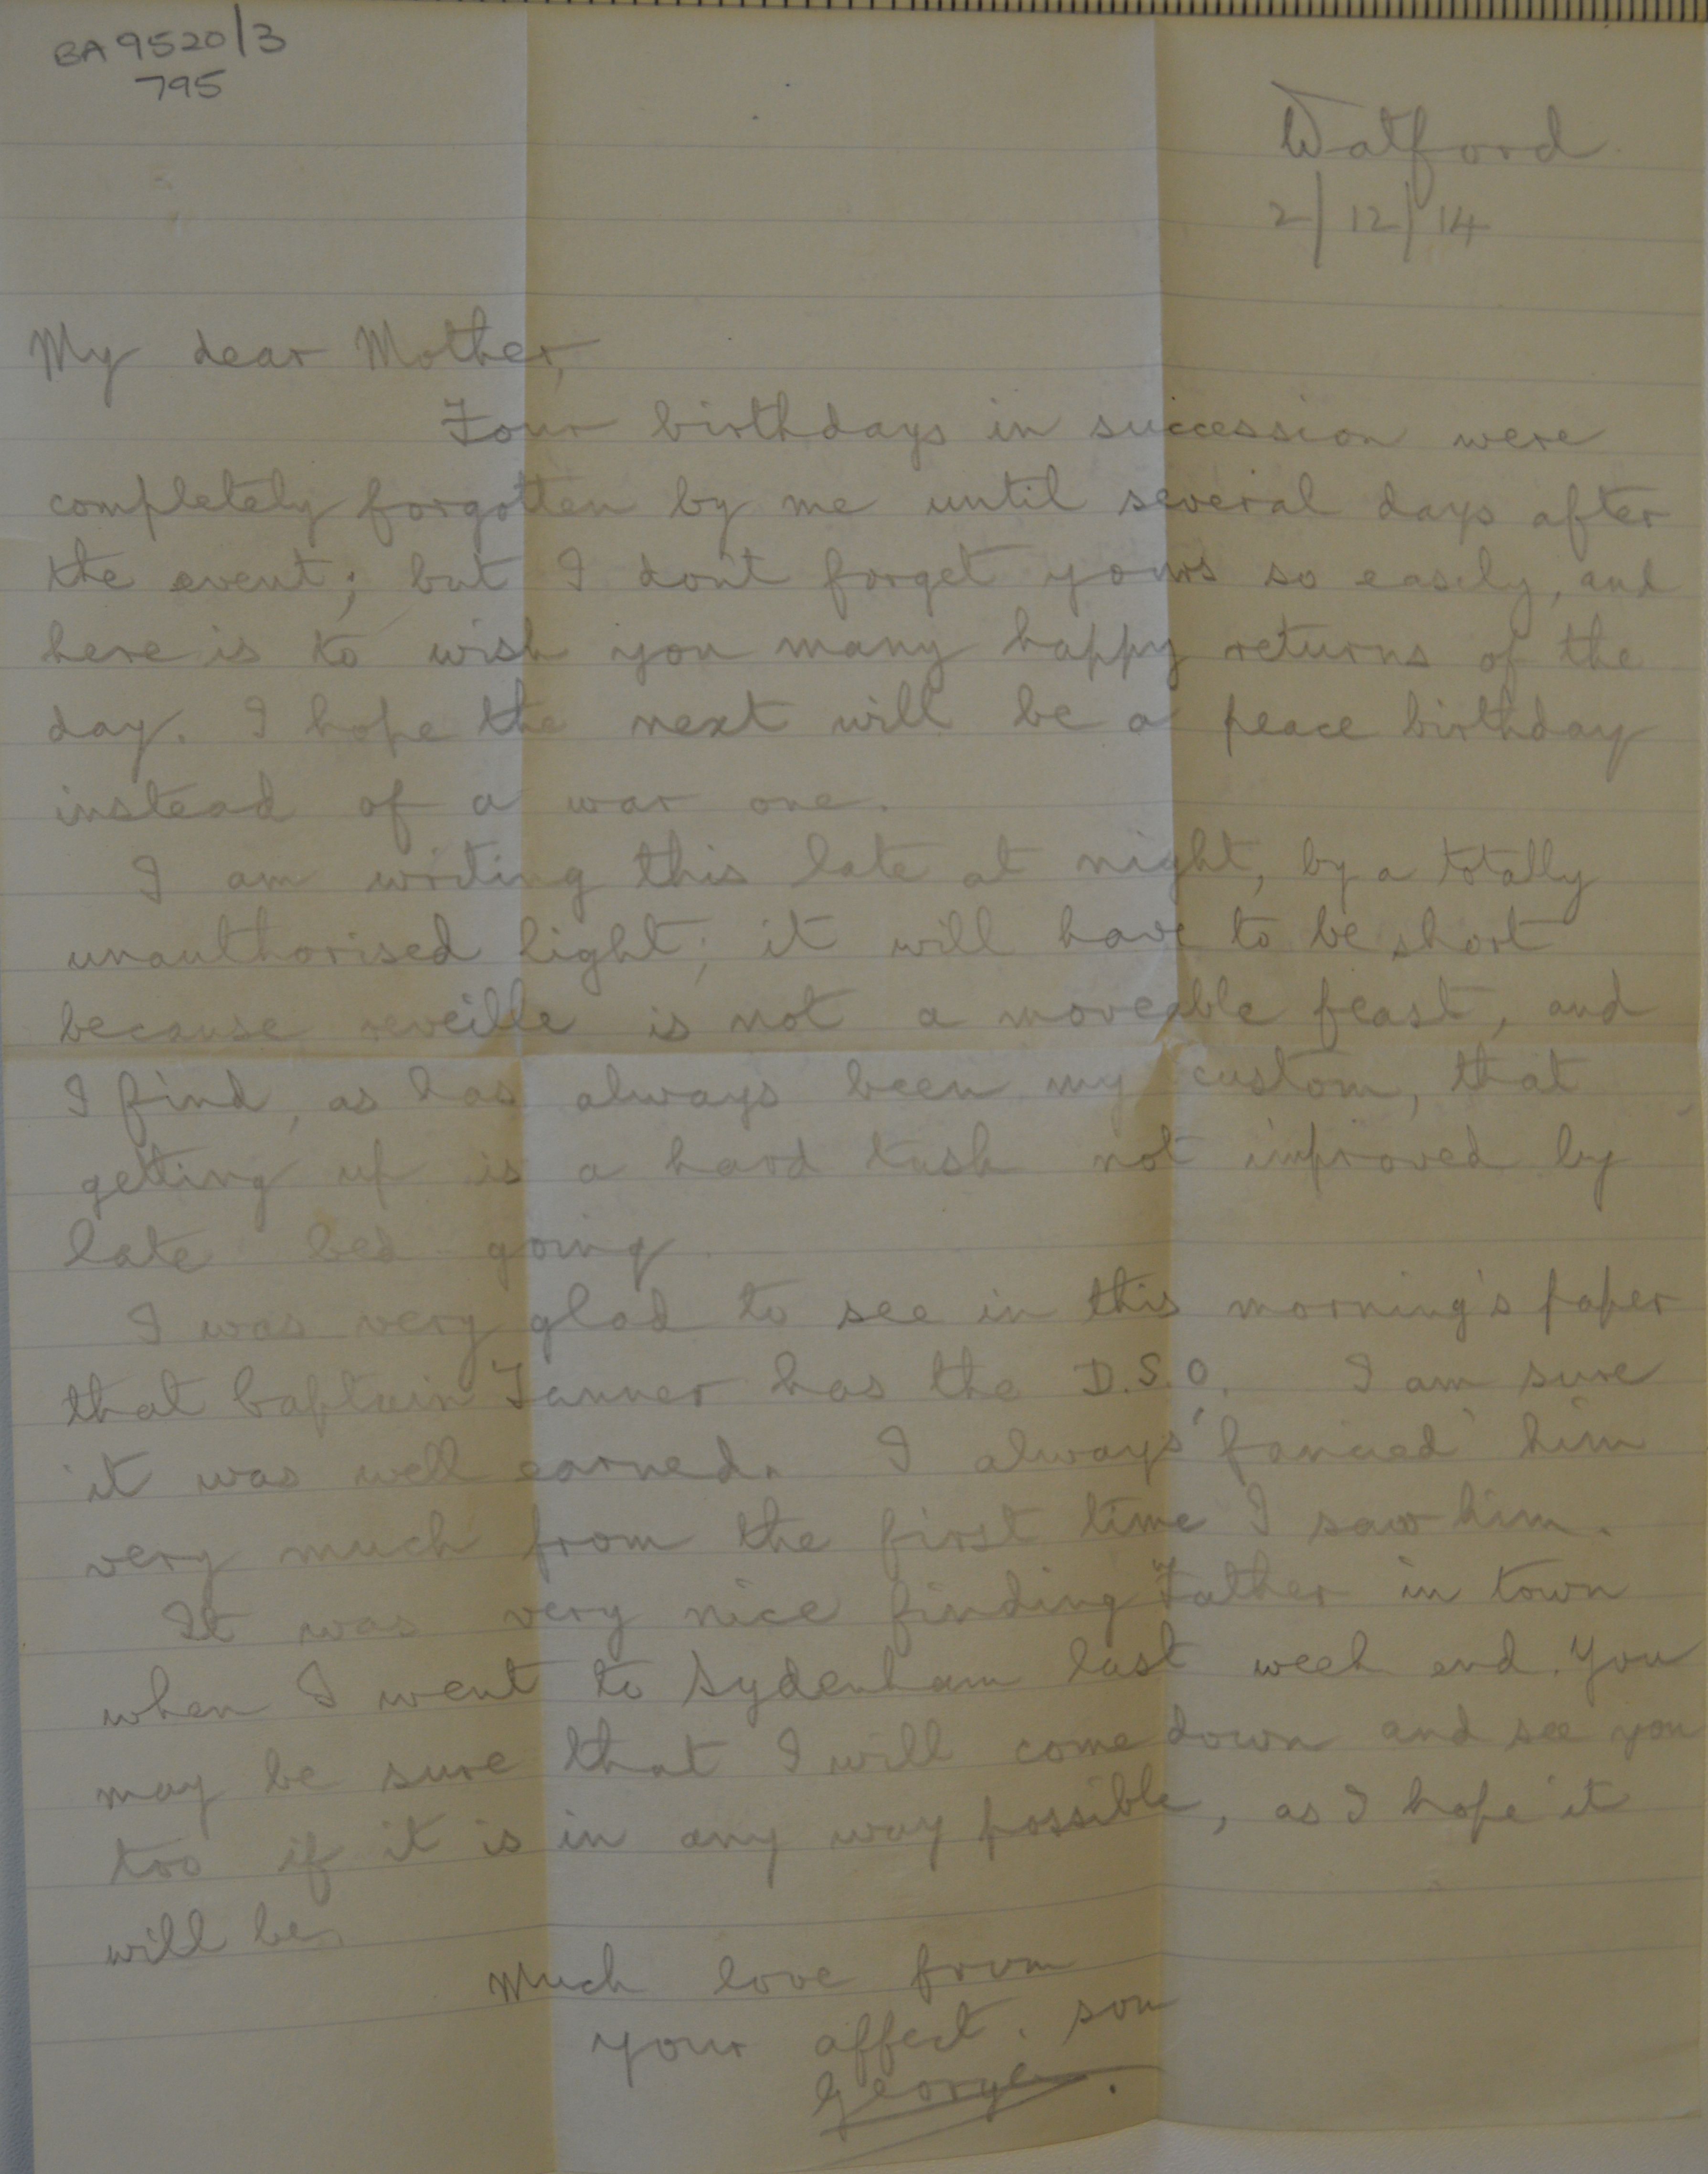 BA 9520/3
795
Watford
2/12/14
My dear Mother,
Four birthdays in succession were
completely forgotten by me until several days after
the event; but I don't forget yours so easily, and
here is to wish you many happy returns of the
day. I hope the next will be a peace birthday
instead of a war one.
I am writing this late at night, by a totally
unauthorised light; it will have to be short
because reveille is not a moveable feast, and
I find, as has always been my custom, that
getting up is a hard task not improved by
late bed going.
I was very glad to see in this morning's paper
that Captain Tanner has the D.S.O. I am sure
it was well earned. I always 'fancied' him
very much from the first time I saw him.
It was very nice finding Father in town
when I went to Sydenham last week end. You
may be sure that I will come down and see you
too if it is in any way possible, as I hope it
will be.
Much love from
your affect. son
George.